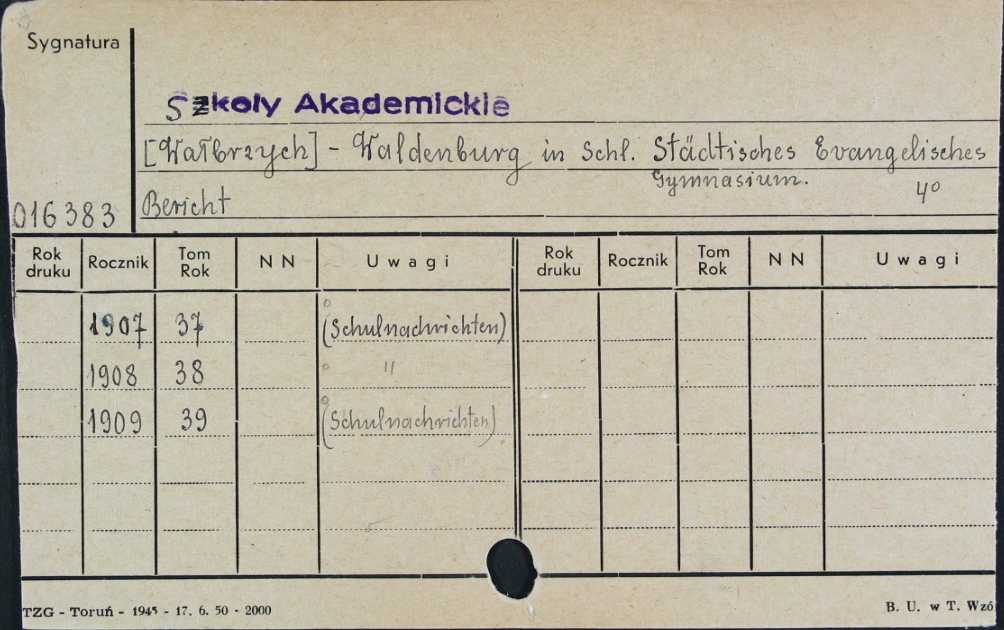 Sygnatura
Szkoły Akademickie
[Wałbrzych] - Waldenburg in Schl. Städtisches Evangelisches
Gymnasium.
4°
016383
Bericht
Rok druku Rocznik Tom Rok NN Uwagi Rok druku Rocznik Tom Rok NN Uwagi
1907 37 (Schulnachrichten)
1908 38 "
1909 39 (Schulnachrichten)
TZG - Toruń - 1945 - 17. 6. 50 - 2000
B. U. w T. Wzó